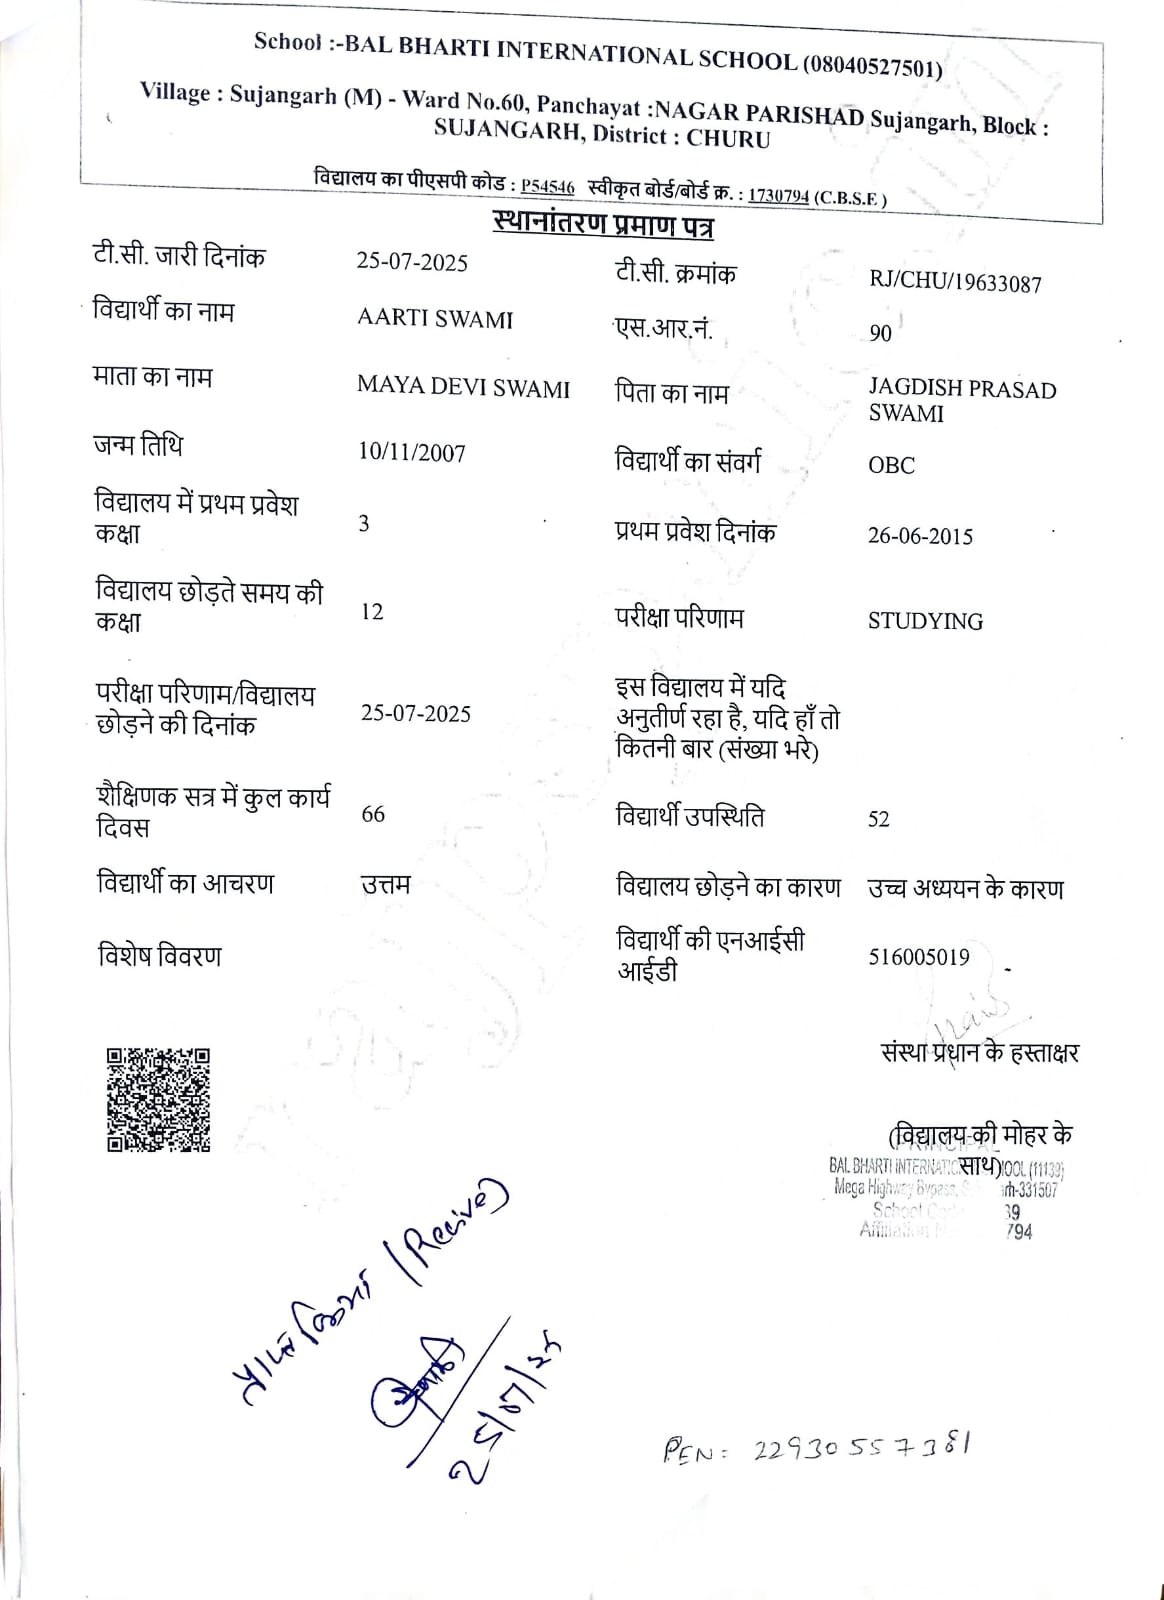 School :-BAL BHARTI INTERNATIONAL SCHOOL (08040527501)
Village : Sujangarh (M) - Ward No.60, Panchayat :NAGAR PARISHAD Sujangarh, Block :
SUJANGARH, District : CHURU
विद्यालय का पीएसपी कोड : P54546 स्वीकृत बोर्ड/बोर्ड क्र. : 1730794 (C.B.S.E )
स्थानांतरण प्रमाण पत्र
टी.सी. जारी दिनांक 25-07-2025 टी.सी. क्रमांक RJ/CHU/19633087
विद्यार्थी का नाम AARTI SWAMI एस.आर.नं. 90
माता का नाम MAYA DEVI SWAMI पिता का नाम JAGDISH PRASAD
SWAMI
जन्म तिथि 10/11/2007 विद्यार्थी का संवर्ग OBC
विद्यालय में प्रथम प्रवेश
कक्षा 3 प्रथम प्रवेश दिनांक 26-06-2015
विद्यालय छोड़ते समय की
कक्षा 12 परीक्षा परिणाम STUDYING
परीक्षा परिणाम/विद्यालय
छोड़ने की दिनांक 25-07-2025
इस विद्यालय में यदि
अनुतीर्ण रहा है, यदि हाँ तो
कितनी बार (संख्या भरे)
शैक्षिणक सत्र में कुल कार्य
दिवस 66 विद्यार्थी उपस्थिति 52
विद्यार्थी का आचरण उत्तम विद्यालय छोड़ने का कारण उच्च अध्ययन के कारण
विशेष विवरण
विद्यार्थी की एनआईसी
आईडी 516005019
संस्था प्रधान के हस्ताक्षर
(विद्यालय की मोहर के
साथ)
PRINCIPAL
BAL BHARTI INTERNATIONAL SCHOOL (11139)
Mega Highway Bypass, 331507
School 39
Affiliation 794
प्राप्त किया (Recive)
25/07/25
PEN: 22930557381